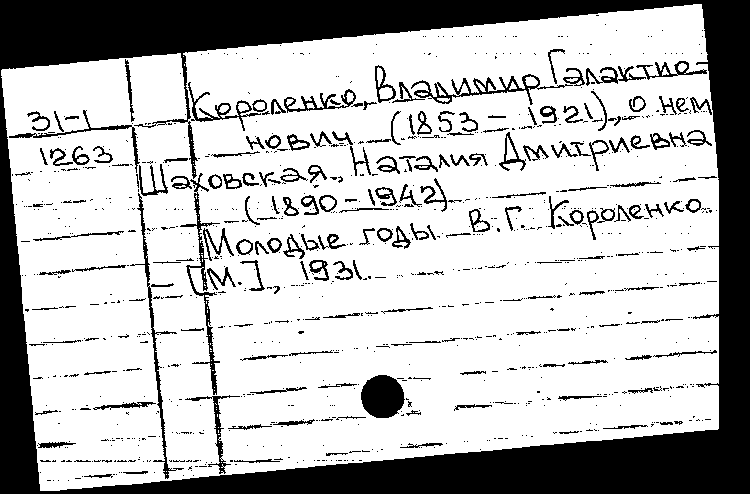 Короленко, Владимир Галактио-
31-1
нович (1853 - 1921), о нем
1263
Шаховская, Наталия Дмитриевна
(1890-1942)
Молодые годы В.Г. Короленко
- [М.], 1931.